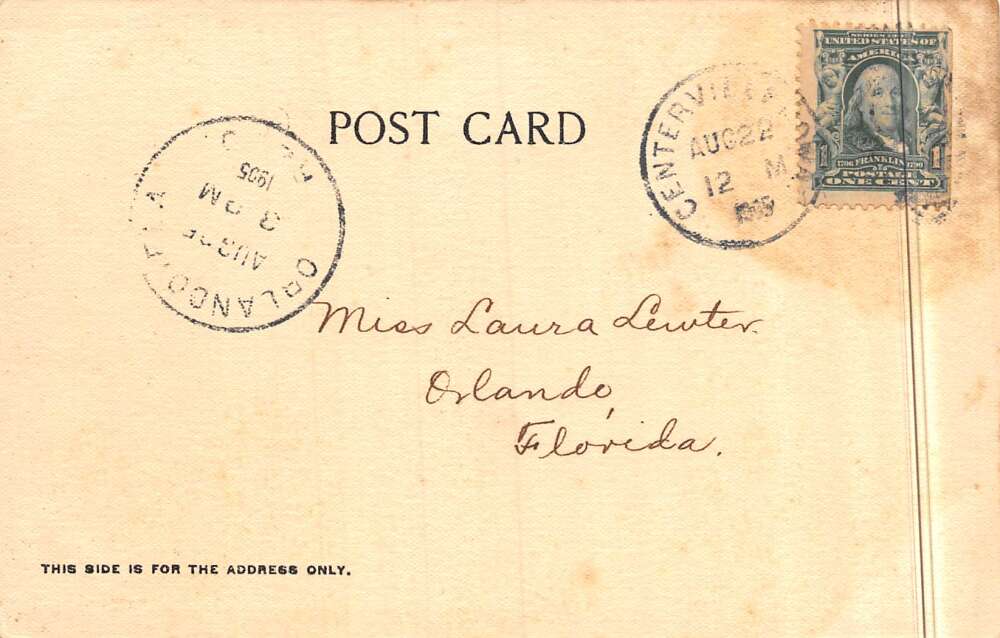 SERIES 1902
UNITED STATES OF
AMERICA
1706 FRANKLIN 1790
1 1
POSTAGE
ONE CENT
CENTERVILLE IOWA
AUG 22
12 M
1905
POST CARD
ORLANDO, FLA
AUG 25
3 PM
1905
REC'D.
Miss Laura Lewter.
Orlando,
Florida.
THIS SIDE IS FOR THE ADDRESS ONLY.